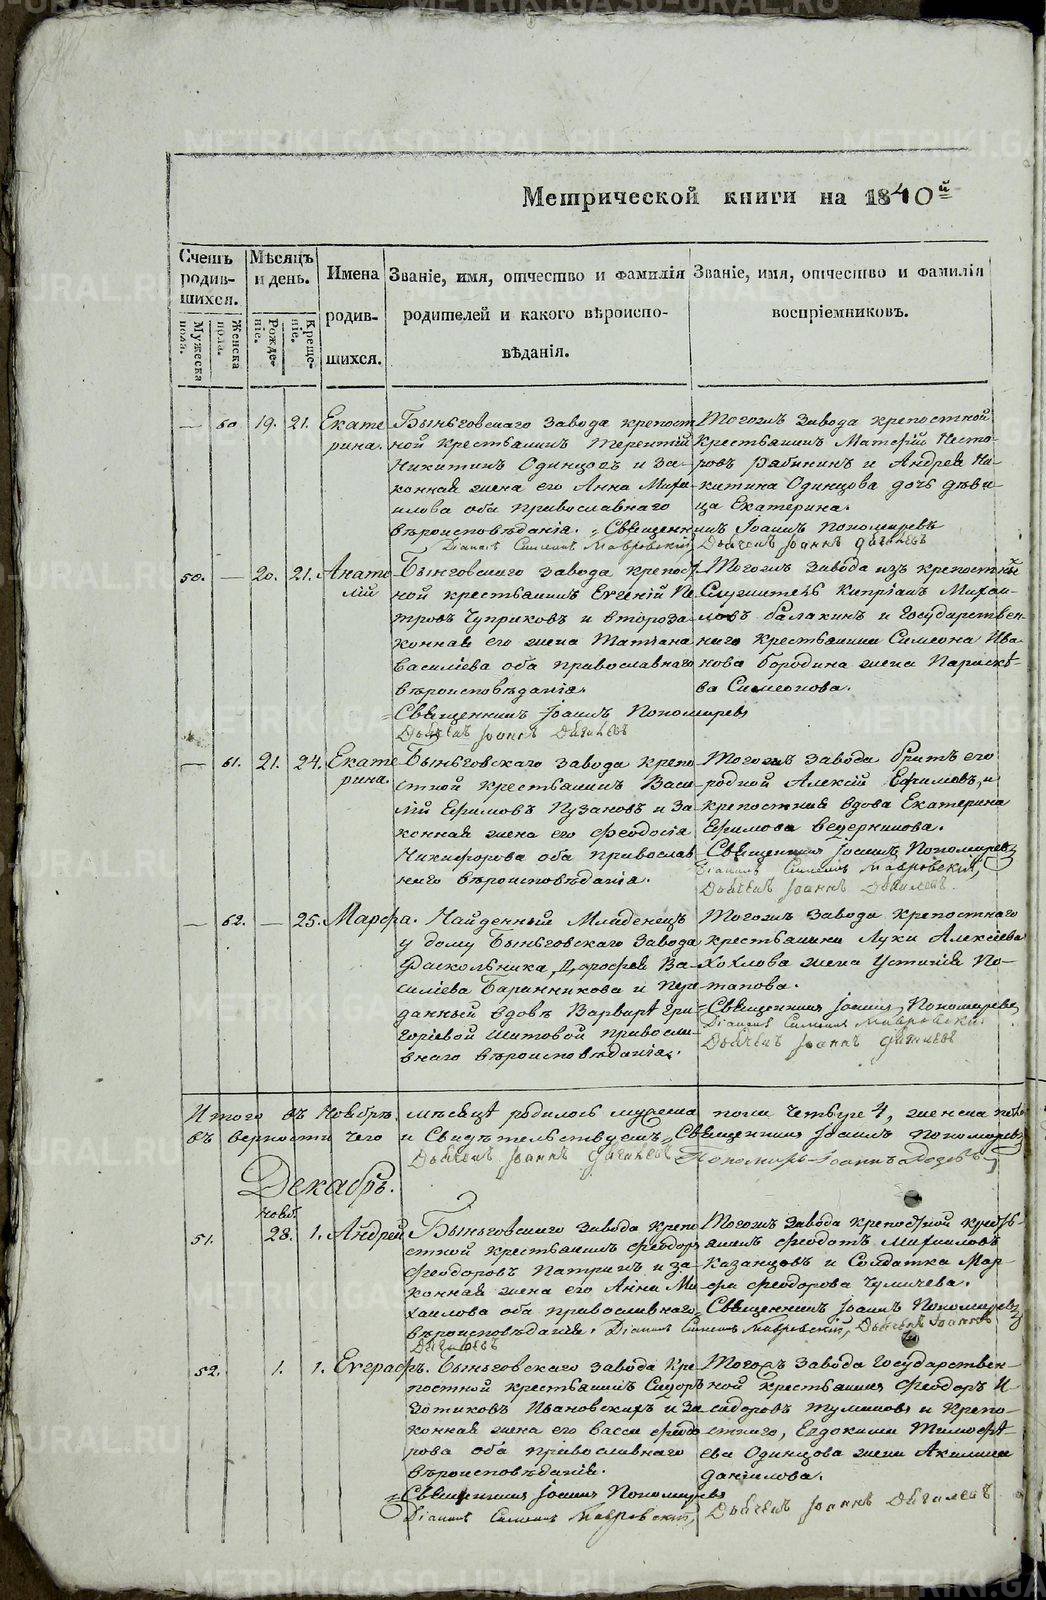 Метрической книги на 1840й
Счетъ родив-шихся.
Мужеска пола.
Женска пола.
Мѣсяцъ и день.
Рожде-ніе.
Креще-ніе.
Имена родив-шихся.
Званіе, имя, отчество и фамилія родителей и какого вѣроиспо-вѣданія.
Званіе, имя, отчество и фамилія воспріемниковъ.
— 60 19. 21. Екате
рина.
Быньговскаго завода крепост
ной крестьянинъ Терентій
Никитинъ Одинцовъ и за-
конная жена его Анна Миха
илова оба православнаго
вѣроисповѣданія.
Тогожъ завода крепостной
крестьянинъ Матфій Несто-
ровъ Рябининъ и Андрея Ни-
китина Одинцова дочь дѣви-
ца Екатерина.
Священникъ Іоаннъ Пономаревъ
Діаконъ Симеонъ Мавровскій
Дьячекъ Іоаннъ Дягилевъ
50. — 20. 21. Анато
лій
Быньговскаго завода крепост
ной крестьянинъ Евгеній Пе
тровъ Чуприковъ и второза-
конная его жена Татіана
Василіева оба православнаго
вѣроисповѣданія.
Тогожъ завода изъ крепостныхъ
Служитель Кипріанъ Михаи-
ловъ Балакинъ и Государствен-
наго крестьянина Симеона Ива
нова Бородина жена Параскѣ-
ва Симеонова.
Священникъ Іоаннъ Пономаревъ
Дьячекъ Іоаннъ Дягилевъ
— 61. 21. 24. Екате
рина.
Быньговскаго завода крепо
стной крестьянинъ Васи
лій Ефимовъ Пузановъ и за
конная жена его Феодосія
Никифорова оба православ
наго вѣроисповѣданія.
Тогожъ завода братъ его
родной Алексій Ефимовъ, и
крепостная вдова Екатерина
Ефимова Ведерникова.
Священникъ Іоаннъ Пономаревъ
Діаконъ Симеонъ Мавровскій,
Дьячекъ Іоаннъ Дягилевъ.
— 62. — 25. Марфа.
Найденный Младенецъ
у дому Быньговскаго завода
Раскольника, Дорофея Ва-
силіева Баранникова и пре
данный вдовѣ Варварѣ Гри
горіевой Шитовой правосла-
внаго вѣроисповѣданія.
Тогожъ завода крепостнаго
крестьянина Луки Алексіева
Хохлова жена Устинія По-
тапова.
Священникъ Іоаннъ Пономаревъ
Діаконъ Симеонъ Мавровскій
Дьячекъ Іоаннъ Дягилевъ
Итого въ Ноябрѣ мѣсяцѣ родилось мужеска пола четыре 4, женска
въ верности чего и Свидѣтельствуемъ, Священникъ Іоаннъ Пономаревъ
Дьячекъ Іоаннъ Дягилевъ Пономарь Іоаннъ
Декабрь.
Нояб.
51. 28. 1. Андрей
Быньговскаго завода крепо
стной крестьянинъ Феодоръ
Феодоровъ Патригинъ и за-
конная жена его Анна Ми
хаилова оба православнаго
вѣроисповѣданія.
Тогожъ завода крепостной кресть-
янинъ Феодотъ Михаиловъ
Казанцовъ и Солдатка Мар-
фа Феодорова Чумичева.
Священникъ Іоаннъ Пономаревъ
Діаконъ Симеонъ Мавровскій, Дьячекъ Іоаннъ
Дягилевъ
52. 1. 1. Евграфъ.
Быньговскаго завода кре
постной крестьянинъ Сидоръ
Зотиковъ Ивановскихъ и за
конная жена его Васса Федо
рова оба православнаго
вѣроисповѣданія.
Тогожъ завода Государствен-
ной крестьянинъ Феодоръ И
сидоровъ Тумановъ и Крепо-
стнаго, Евдокима Тимофѣ-
ева Одинцова жена Акилина
Даніилова.
Священникъ Іоаннъ Пономаревъ
Діаконъ Симеонъ Мавровскій, Дьячекъ Іоаннъ Дягилевъ
METRIKI.GASO-URAL.RU